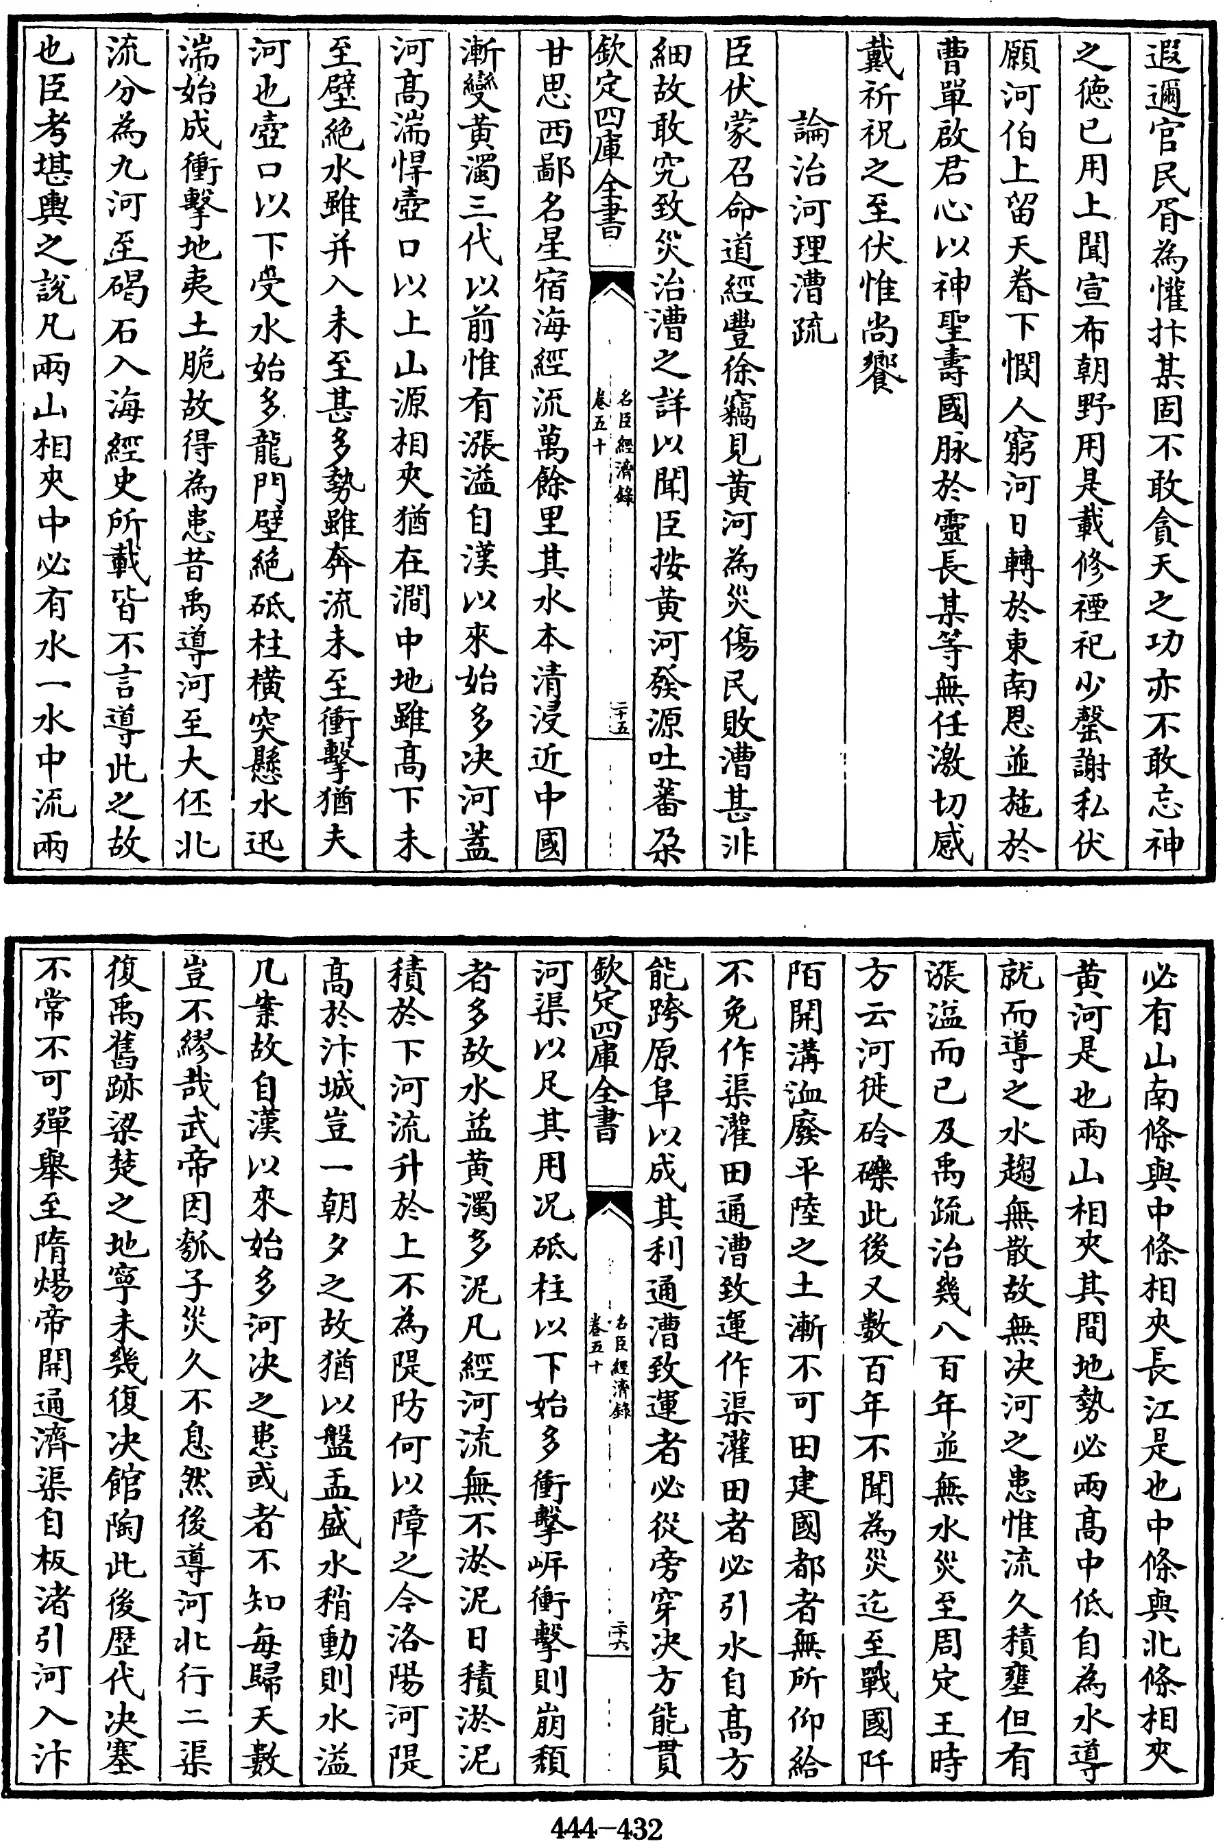 遐邇官民胥為懽抃某固不敢貪天之功亦不敢忘神
之徳已用上聞宣布朝野用是載修禋祀少罄謝私伏
願河伯上留天眷下憫人窮河日轉於東南恩並施於
曹單啟君心以神聖壽國脉於靈長某等無任激切感
戴祈祝之至伏惟尚饗
論治河理漕疏
臣伏蒙召命道經豐徐竊見黄河為災傷民敗漕甚非
細故敢究致災治漕之詳以聞臣按黄河發源吐蕃朶
欽定四庫全書
名臣經濟錄
卷五十
二十五
甘思西鄙名星宿海經流萬餘里其水本清浸近中國
漸變黄濁三代以前惟有漲溢自漢以來始多决河蓋
河髙湍悍壺口以上山源相夾猶在澗中地雖髙下未
至壁絶水雖并入未至甚多勢雖奔流未至衝擊猶夫
河也壺口以下受水始多龍門壁絶砥柱横突懸水迅
湍始成衝擊地夷土脆故得為患昔禹導河至大伾北
流分為九河至碣石入海經史所載皆不言導此之故
也臣考堪輿之説凡兩山相夾中必有水一水中流兩
必有山南條與中條相夾長江是也中條與北條相夾
黄河是也兩山相夾其間地勢必兩髙中低自為水導
就而導之水趨無散故無决河之患惟流久積壅但有
漲溢而已及禹疏治幾八百年並無水災至周定王時
方云河徙砱礫此後又數百年不聞為災迄至戰國阡
陌開溝洫廢平陸之土漸不可田建國都者無所仰給
不免作渠灌田通漕致運作渠灌田者必引水自髙方
能跨原阜以成其利通漕致運者必從旁穿决方能貫
欽定四庫全書
名臣經濟錄
卷五十
二十六
河渠以足其用况砥柱以下始多衝擊㟁衝擊則崩頽
者多故水益黄濁多泥凡經河流無不淤泥日積淤泥
積於下河流升於上不為隄防何以障之今洛陽河隄
髙於汴城豈一朝夕之故猶以盤盂盛水稍動則水溢
几案故自漢以來始多河决之患或者不知每歸天數
豈不繆哉武帝因瓠子災久不息然後導河北行二渠
復禹舊跡梁楚之地寧未幾復决館陶此後歴代决塞
不常不可殫舉至隋煬帝開通濟渠自板渚引河入汴
444-432